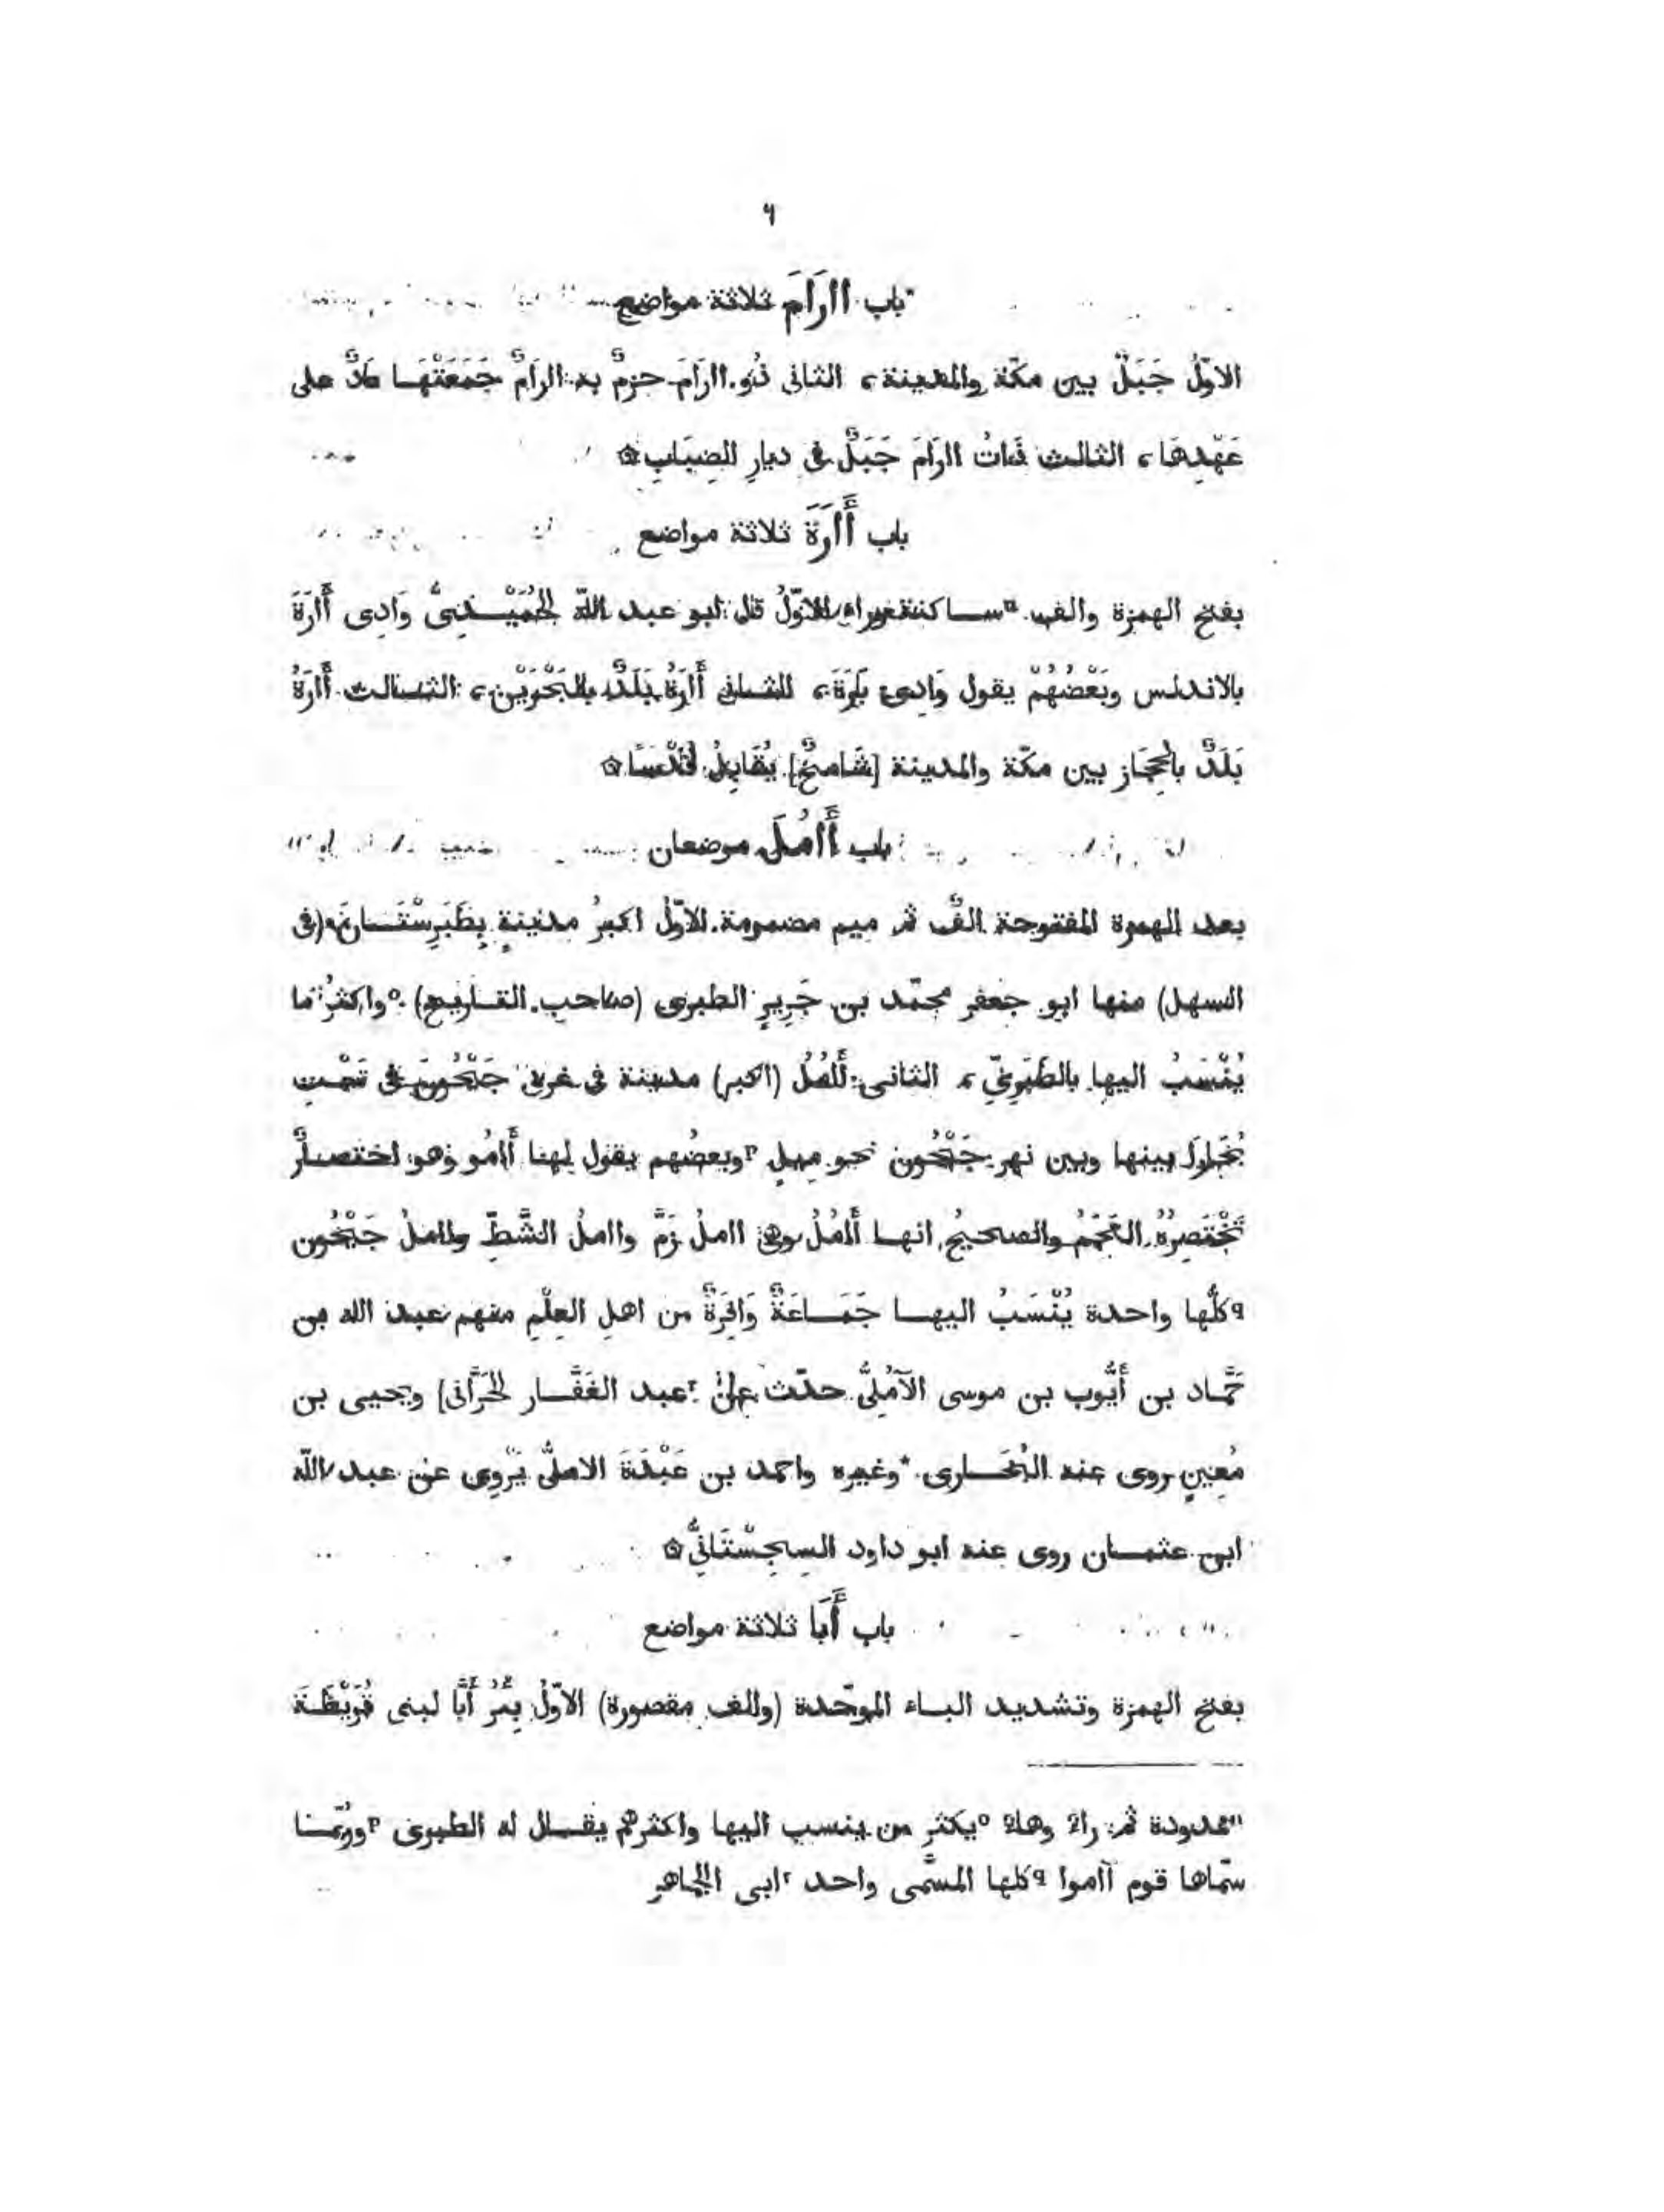 ٦
*باب اارَامَ ثلاثة مواضع
الاوّلُ جَبَلٌ بين مكّة والمدينة، الثانى ذُو اارَامَ حزمٌ به ااراَمٌ جَمَعَتْهَا عَادٌ على
عَهْدِهَا، الثالث ذَاتُ ااراَمَ جَبَلٌ فى ديارِ الضِبَابِ ۞
باب أَارَةَ ثلاثة مواضع
بفتح الهمزة والف ⁿساكنة وراء الاوّلُ قال ابو عبد اللّه الحُمَيْدِىُّ وَادِى أَارَةَ
بالاندلس وبَعْضُهُمْ يقول وَادِى يَارَةَ، الثانى أَارَةُ بَلَدٌ بالبَحْرَيْن، الثالث أَارَةُ
بَلَدٌ بالحِجَاز بين مكّة والمدينة [شَامِخٌ] يُقَابِلُ قُدْسًا ۞
باب أَامُلَ موضعان
بعد الهمزة المفتوحة الفٌ ثم ميم مضمومة الاوّلُ اكبرُ مدينةٍ بِطَبَرِسْتَانَ (فى
السهل) منها ابو جعفر محمّد بن جَرِيرٍ الطبرى (صاحب التاريخ) ᵒواكثرُ ما
يُنْسَبُ اليها بالطَبَرِىِّ، الثانى أَامُلُ (اكبر) مدينة فى غربى جَيْحُونَ فى سَمْتِ
بُخَارَا بينها وبين نهر جَيْحُون نحو مِيلٍ ᵖوبعضُهم يقول لها أَامُو وهو اختصارٌ
تَخْتَصِرُهُ العَجَمُ والصحيحُ انها أَامُلُ وهى اامل زَمَّ واامل الشَّطِّ واامل جَيْحُون
ᑫكلُّها واحدة يُنْسَبُ اليها جَمَاعَةٌ وَافِرَةٌ من اهلِ العِلْمِ منهم عبد الله بن
حَمَّاد بن أَيُّوب بن موسى الآمُلِىُّ حدّث عن ʳعبد الغَفَّار الحَرَّانى] ويحيى بن
مُعِينٍ روى عنه البُخَارى *وغيره واحمد بن عَبْدَةَ الاملىُّ يَرْوِى عن عبد اللّه
ابن عثمان روى عنه ابو داود السِجِسْتَانِىُّ ۞
باب أَبَّا ثلاثة مواضع
بفتح الهمزة وتشديد الباء الموحّدة (والف مقصورة) الاوّلُ بِئْرُ أَبَّا لبنى قُرَيْظَةَ
ⁿممدودة ثم راءٌ وهاءٌ ᵒيكثر من ينسب اليها واكثرهم يقال له الطبرى ᵖورُبَّما
سمّاها قوم آاموا ᑫكلها المسمَّى واحد ʳابى الجماهر